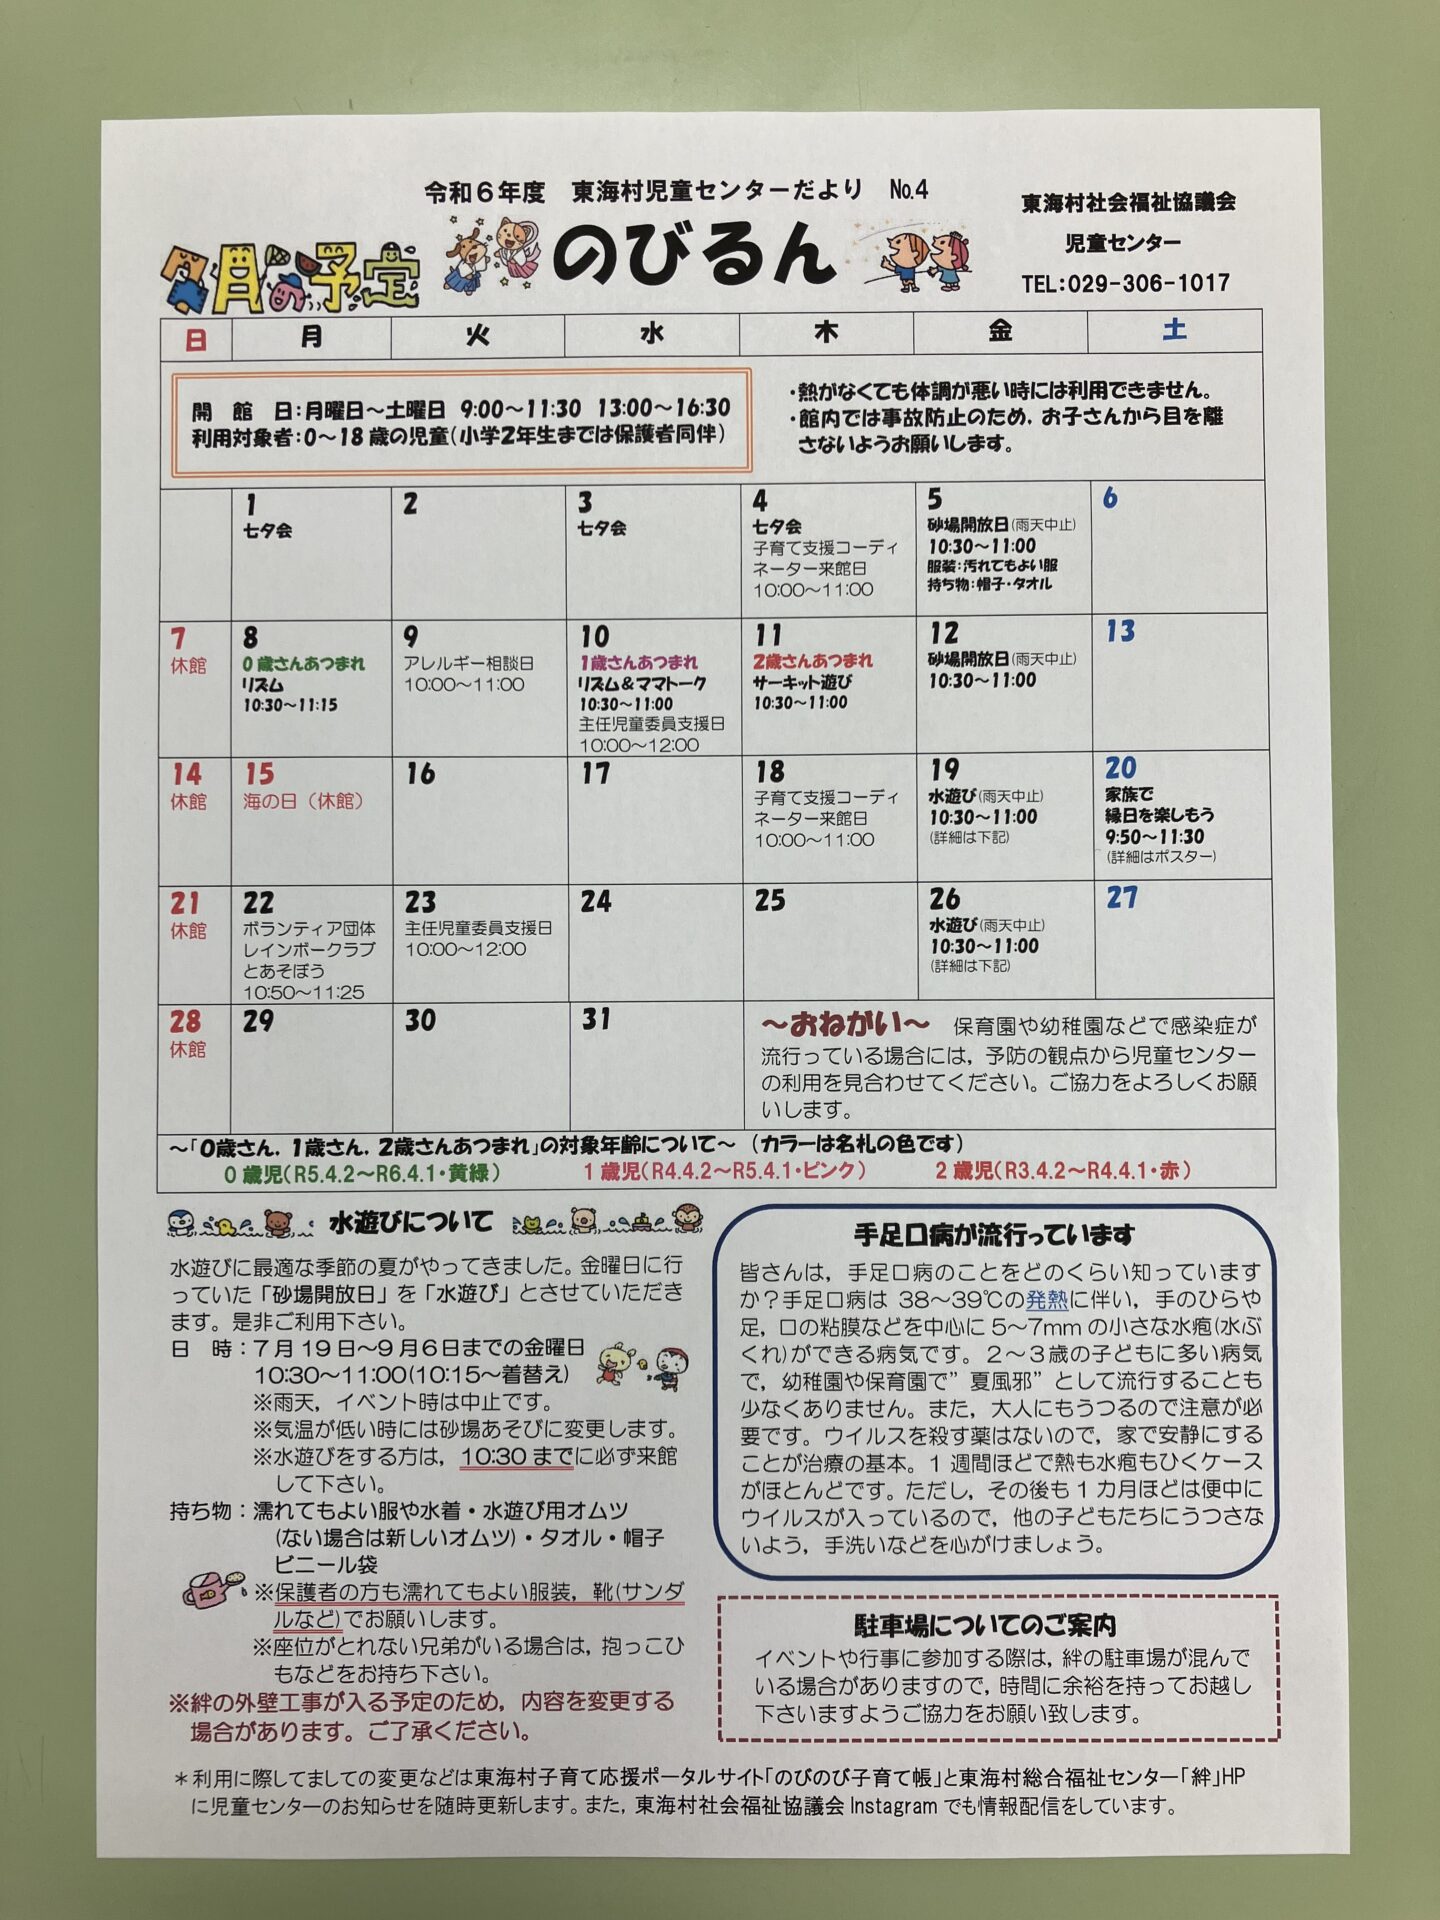 令和6年度 東海村児童センターだより №4
東海村社会福祉協議会
児童センター
TEL:029-306-1017
7月の予定
のびるん
日 月 火 水 木 金 土
開 館 日:月曜日～土曜日 9:00～11:30 13:00～16:30
利用対象者:0～18歳の児童(小学2年生までは保護者同伴)
・熱がなくても体調が悪い時には利用できません。
・館内では事故防止のため,お子さんから目を離
さないようお願いします。
1
七夕会
2
3
七夕会
4
七夕会
子育て支援コーディ
ネーター来館日
10:00～11:00
5
砂場開放日(雨天中止)
10:30～11:00
服装:汚れてもよい服
持ち物:帽子・タオル
6
7
休館
8
0歳さんあつまれ
リズム
10:30～11:15
9
アレルギー相談日
10:00～11:00
10
1歳さんあつまれ
リズム&ママトーク
10:30～11:00
主任児童委員支援日
10:00～12:00
11
2歳さんあつまれ
サーキット遊び
10:30～11:00
12
砂場開放日(雨天中止)
10:30～11:00
13
14
休館
15
海の日(休館)
16
17
18
子育て支援コーディ
ネーター来館日
10:00～11:00
19
水遊び(雨天中止)
10:30～11:00
(詳細は下記)
20
家族で
縁日を楽しもう
9:50～11:30
(詳細はポスター)
21
休館
22
ボランティア団体
レインボークラブ
とあそぼう
10:50～11:25
23
主任児童委員支援日
10:00～12:00
24
25
26
水遊び(雨天中止)
10:30～11:00
(詳細は下記)
27
28
休館
29
30
31
～おねがい～ 保育園や幼稚園などで感染症が
流行っている場合には,予防の観点から児童センター
の利用を見合わせてください。ご協力をよろしくお願
いします。
～「0歳さん,1歳さん,2歳さんあつまれ」の対象年齢について～ (カラーは名札の色です)
0歳児(R5.4.2～R6.4.1・黄緑) 1歳児(R4.4.2～R5.4.1・ピンク) 2歳児(R3.4.2～R4.4.1・赤)
水遊びについて
水遊びに最適な季節の夏がやってきました。金曜日に行
っていた「砂場開放日」を「水遊び」とさせていただき
ます。是非ご利用下さい。
日 時:7月19日～9月6日までの金曜日
10:30～11:00(10:15～着替え)
※雨天,イベント時は中止です。
※気温が低い時には砂場あそびに変更します。
※水遊びをする方は,10:30までに必ず来館
して下さい。
持ち物:濡れてもよい服や水着・水遊び用オムツ
(ない場合は新しいオムツ)・タオル・帽子
ビニール袋
※保護者の方も濡れてもよい服装,靴(サンダ
ルなど)でお願いします。
※座位がとれない兄弟がいる場合は,抱っこひ
もなどをお持ち下さい。
※絆の外壁工事が入る予定のため,内容を変更する
場合があります。ご了承ください。
手足口病が流行っています
皆さんは,手足口病のことをどのくらい知っています
か?手足口病は 38～39℃の発熱に伴い,手のひらや
足,口の粘膜などを中心に5～7mmの小さな水疱(水ぶ
くれ)ができる病気です。2～3歳の子どもに多い病気
で,幼稚園や保育園で”夏風邪”として流行することも
少なくありません。また,大人にもうつるので注意が必
要です。ウイルスを殺す薬はないので,家で安静にする
ことが治療の基本。1週間ほどで熱も水疱もひくケース
がほとんどです。ただし,その後も1カ月ほどは便中に
ウイルスが入っているので,他の子どもたちにうつさな
いよう,手洗いなどを心がけましょう。
駐車場についてのご案内
イベントや行事に参加する際は,絆の駐車場が混んで
いる場合がありますので,時間に余裕を持ってお越し
下さいますようご協力をお願い致します。
＊利用に際してましての変更などは東海村子育て応援ポータルサイト「のびのび子育て帳」と東海村総合福祉センター「絆」HP
に児童センターのお知らせを随時更新します。また,東海村社会福祉協議会Instagramでも情報配信をしています。